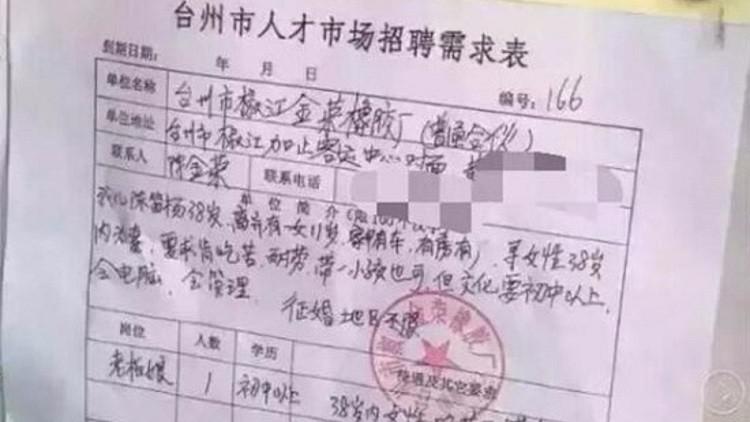 台州市人才市场招聘需求表
到期日期： 年 月 日
编号：166
单位名称 台州市椒江金荣橡胶厂（普通合伙）
单位地址 台州市椒江加止客运中心对面
联系人 陈金荣 联系电话
单位简介
我儿陈 杨38岁，离异有一女11岁，家有车，有房有），寻女性38岁
内法妻，要求肯吃苦，耐劳，带一小孩也可，但文化要初中以上，
会电脑，会管理。
征婚地区不限
荣橡胶厂
岗位 人数 学历 待遇及其它要求
老板娘 1 初中以上 38岁内女性